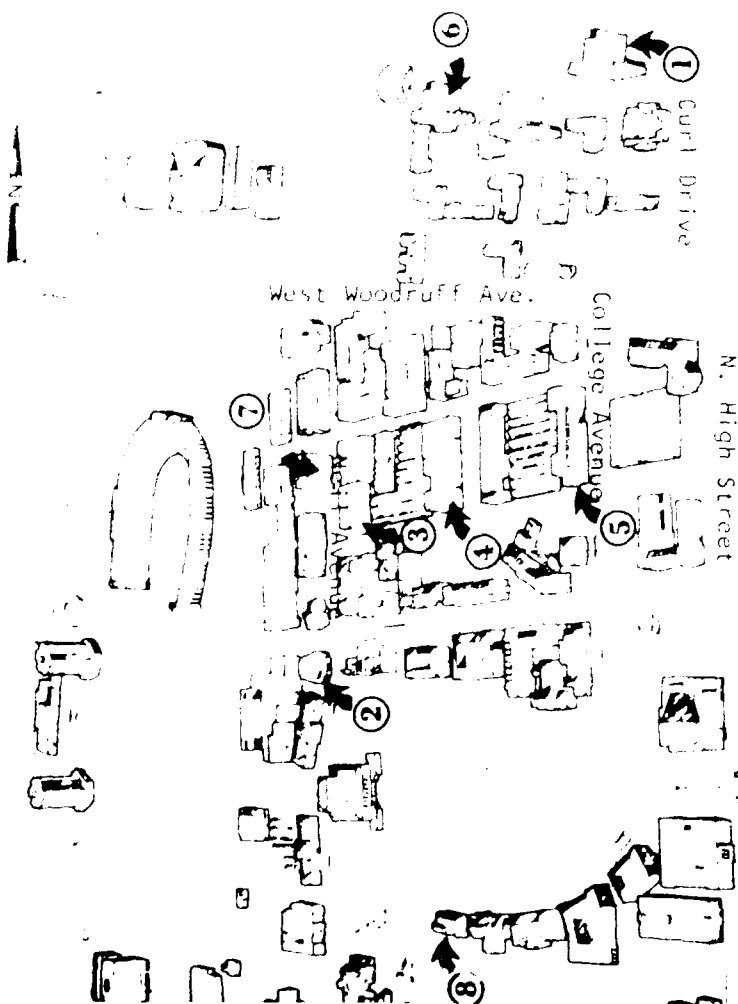 6
1
Curl Drive
N
West Woodruff Ave.
College Avenue
N. High Street
7
Neil Avenue
3
4
5
2
8